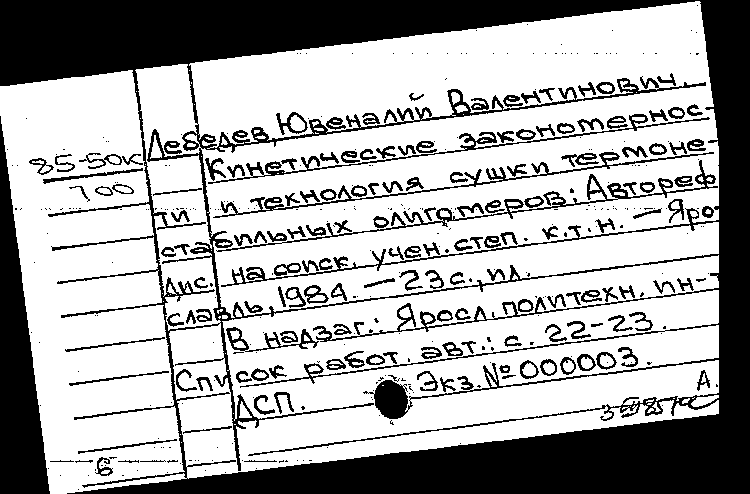 Лебедев, Ювеналий Валентинович.
85-50к
700
Кинетические закономернос-
ти и технология сушки термоне-
стабильных олигомеров: Автореф.
дис. на соиск. учен. степ. к.т.н. — Яро-
славль, 1984. — 23 с., ил.
В надзаг.: Яросл. политехн. ин-т
Список работ. авт.: с. 22-23.
ДСП. Экз. № 000003.
А.
6